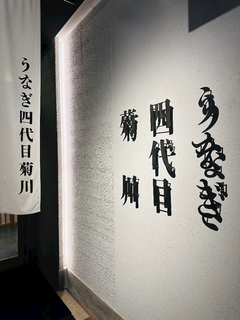 うなぎ四代目菊川
うなぎ
四代目
菊川